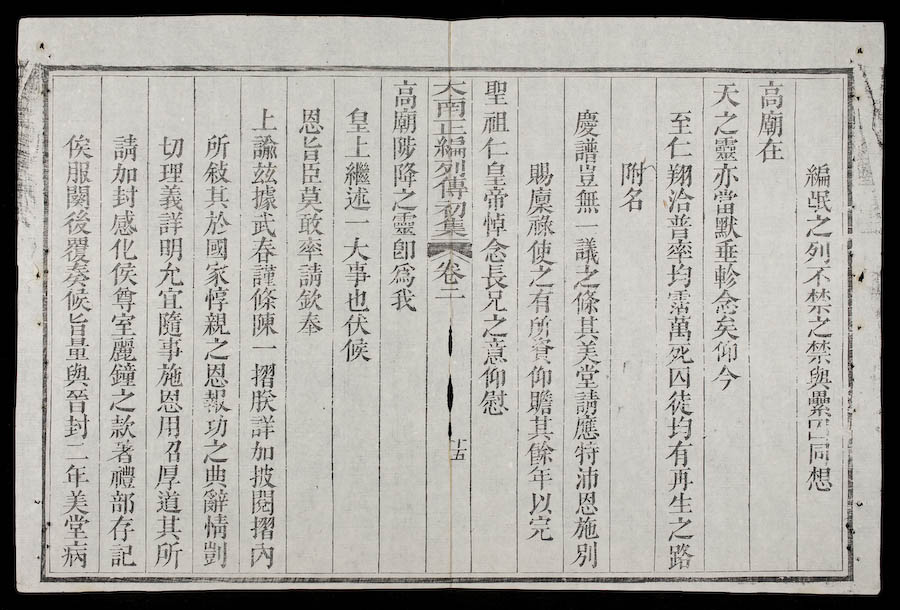 編氓之列不禁之禁與纍囚同想
高廟在
天之靈亦當默垂軫念矣仰今
至仁翔洽普率均霑萬死囚徒均有再生之路
附名
慶譜豈無一議之條其美堂請應特沛恩施別
賜廩祿使之有所資仰贍其餘年以完
聖祖仁皇帝悼念長兄之意仰慰
大南正編列傳初集
卷二
十五
高廟陟降之靈卽爲我
皇上繼述一大事也伏候
恩旨臣莫敢率請欽奉
上諭茲據武春謹條陳一摺朕詳加披閱摺內
所敍其於國家惇親之恩報功之典辭情剴
切理義詳明允宜隨事施恩用召厚道其所
請加封感化侯尊室麗鐘之款著禮部存記
俟服闋後覆奏候旨量與晉封二年美堂病